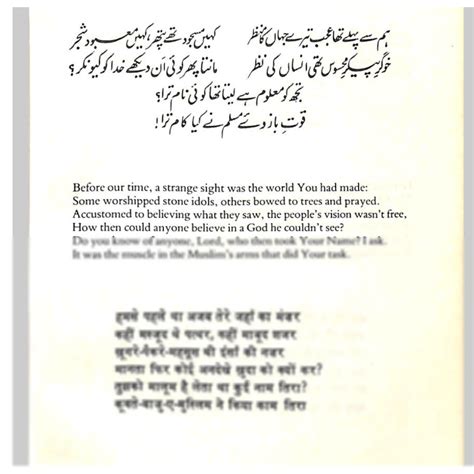 ہم سے پہلے تھا عجب تیرے جہاں کا منظر کہیں مسجود تھے پتھر، کہیں معبود شجر
خوگرِ پیکرِ محسوس تھی انساں کی نظر مانتا پھر کوئی اَن دیکھے خدا کو کیونکر؟
تجھ کو معلوم ہے لیتا تھا کوئی نام ترا؟
قوتِ بازوئے مسلم نے کیا کام ترا!
Before our time, a strange sight was the world You had made:
Some worshipped stone idols, others bowed to trees and prayed.
Accustomed to believing what they saw, the people's vision wasn't free,
How then could anyone believe in a God he couldn't see?
Do you know of anyone, Lord, who then took Your Name? I ask.
It was the muscle in the Muslim's arms that did Your task.
हमसे पहले था अजब तेरे जहाँ का मंजर
कहीं मस्जूद थे पत्थर, कहीं माबूद शजर
की नजर
मानता फिर कोई अनदेखे खुदा को क्यों कर?
तुझको मालूम है लेता था कुई नाम तिरा?
कूवते-बाजु-ए-मुस्लिम ने किया काम तिरा